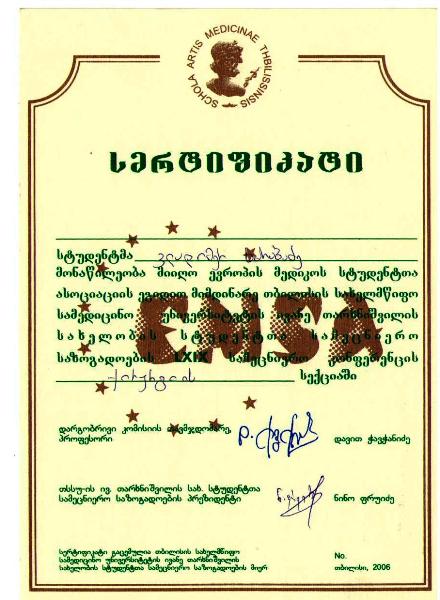 SCHOLA ARTIS MEDICINAE THBILISSINSIS
სერტიფიკატი
სტუდენტმა ვლადიმერ
მონაწილეობა მიიღო ევროპის მედიკოს სტუდენტთა
ასოციაციის ეგიდით მიმდინარე თბილისის სახელმწიფო
სამედიცინო უნივერსიტეტის ივანე თარხნიშვილის
სახელობის სტუდენტთა სამეცნიერო
საზოგადოების LXIX სამეცნიერო კონფერენციის
EMSA
ქირურგიის სექციაში
დარგობრივი კომისიის თავმჯდომარე,
პროფესორი დავით ჭავჭანიძე
თსსუ-ის ივ. თარხნიშვილის სახ. სტუდენტთა
სამეცნიერო საზოგადოების პრეზიდენტი ნინო ფრუიძე
სერტიფიკატი გაცემულია თბილისის სახელმწიფო
სამედიცინო უნივერსიტეტის ივანე თარხნიშვილის
სახელობის სტუდენტთა სამეცნიერო საზოგადოების მიერ
No.
თბილისი, 2006